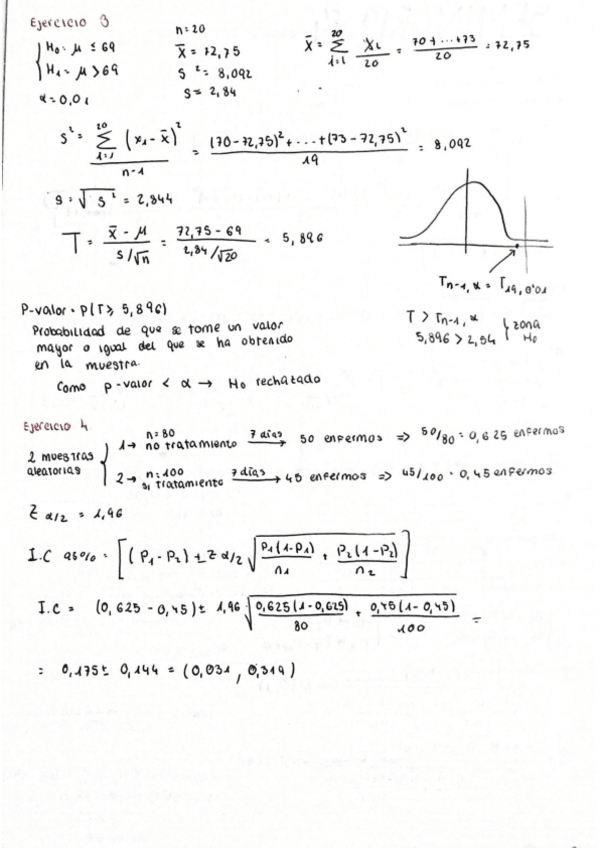 Ejercicio 3
H₀ = μ ≤ 69
H₁ = μ > 69
α = 0,01
n = 20
x̄ = 72,75
s² = 8,092
s = 2,84
x̄ = 20 Σ i=1 xᵢ/20 = 70 + ... + 73 / 20 = 72,75
s² = 20 Σ i=1 (x₁ - x̄)² / n-1 = (70 - 72,75)² + ... + (73 - 72,75)² / 19 = 8,092
s = √s² = 2,844
T = x̄ - μ / s/√n = 72,75 - 69 / 2,84/√20 = 5,896
Tn-1, α = T19, 0'01
P-valor = P(T ≥ 5,896)
Probabilidad de que se tome un valor
mayor o igual del que se ha obtenido
en la muestra.
Como p-valor < α → H₀ rechatado
T > Tn-1, α
5,896 > 2,54
} zona H₀
Ejercicio 4
2 muestras
aleatorias
1 → n = 80 no tratamiento 7 días → 50 enfermos => 50/80 = 0,625 enfermos
2 → n = 100 si tratamiento 7 días → 45 enfermos => 45/100 = 0,45 enfermos
Z α/2 = 1,96
I.C 95% = [(P₁ - P₂) ± Z α/2 √ P₁(1-P₁) / n₁ + P₂(1-P₂) / n₂ ]
I.C = (0,625 - 0,45) ± 1,96 √ 0,625(1 - 0,625) / 80 + 0,45(1 - 0,45) / 100 =
= 0,175 ± 0,144 = (0,031, 0,319)